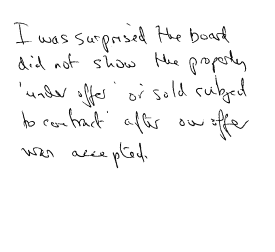 I was surprised the board
did not show the property
'under offer' or sold subject
to contract' after our offer
was accepted.